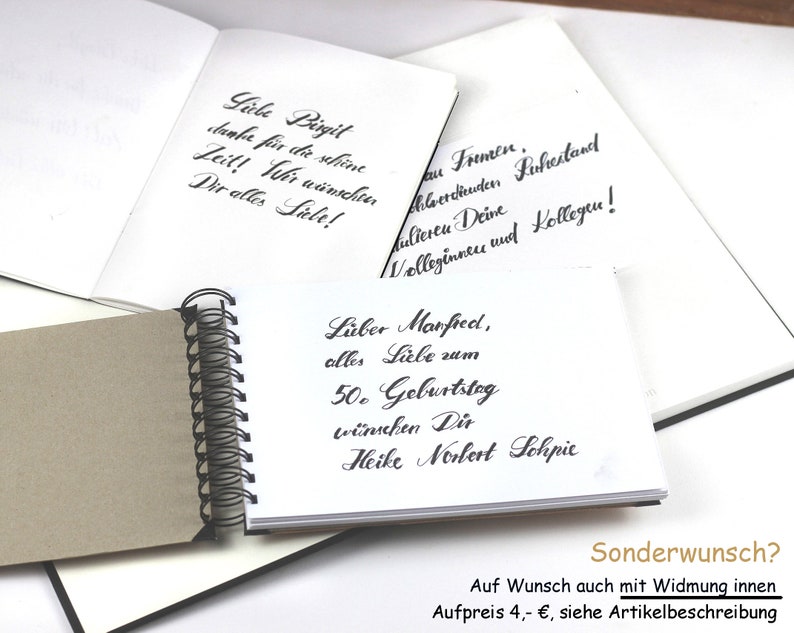 Liebe Birgit
danke für die schöne
Zeit! Wir wünschen
Dir alles Liebe!
Ruhestand
Deine
Kolleginnen und Kollegen!
Lieber Manfred,
alles Liebe zum
50. Geburtstag
wünschen Dir
Heike Norbert Sophie
Sonderwunsch?
Auf Wunsch auch mit Widmung innen
Aufpreis 4,- €, siehe Artikelbeschreibung